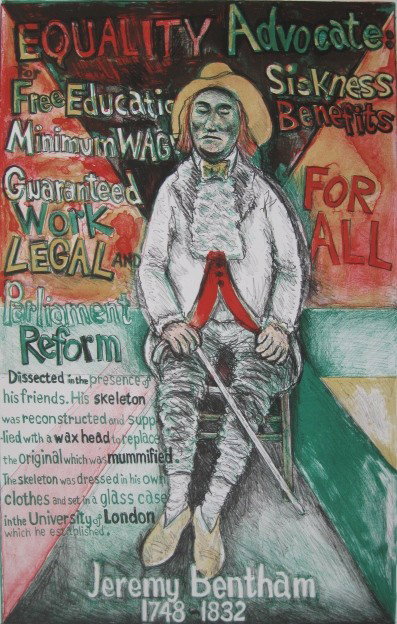 EQUALITY Advocate:
for
Free Educatio
Sickness
Benefits
Minimum WAG
Guaranteed
Work
FOR
ALL
LEGAL AND
Parliament
Reform
Dissected in the presence of
his friends. His skeleton
was reconstructed and supp
lied with a wax head to replace
the original which was mummified.
The skeleton was dressed in his own
clothes and set in a glass case
in the University of London
which he established.
Jeremy Bentham
1748-1832